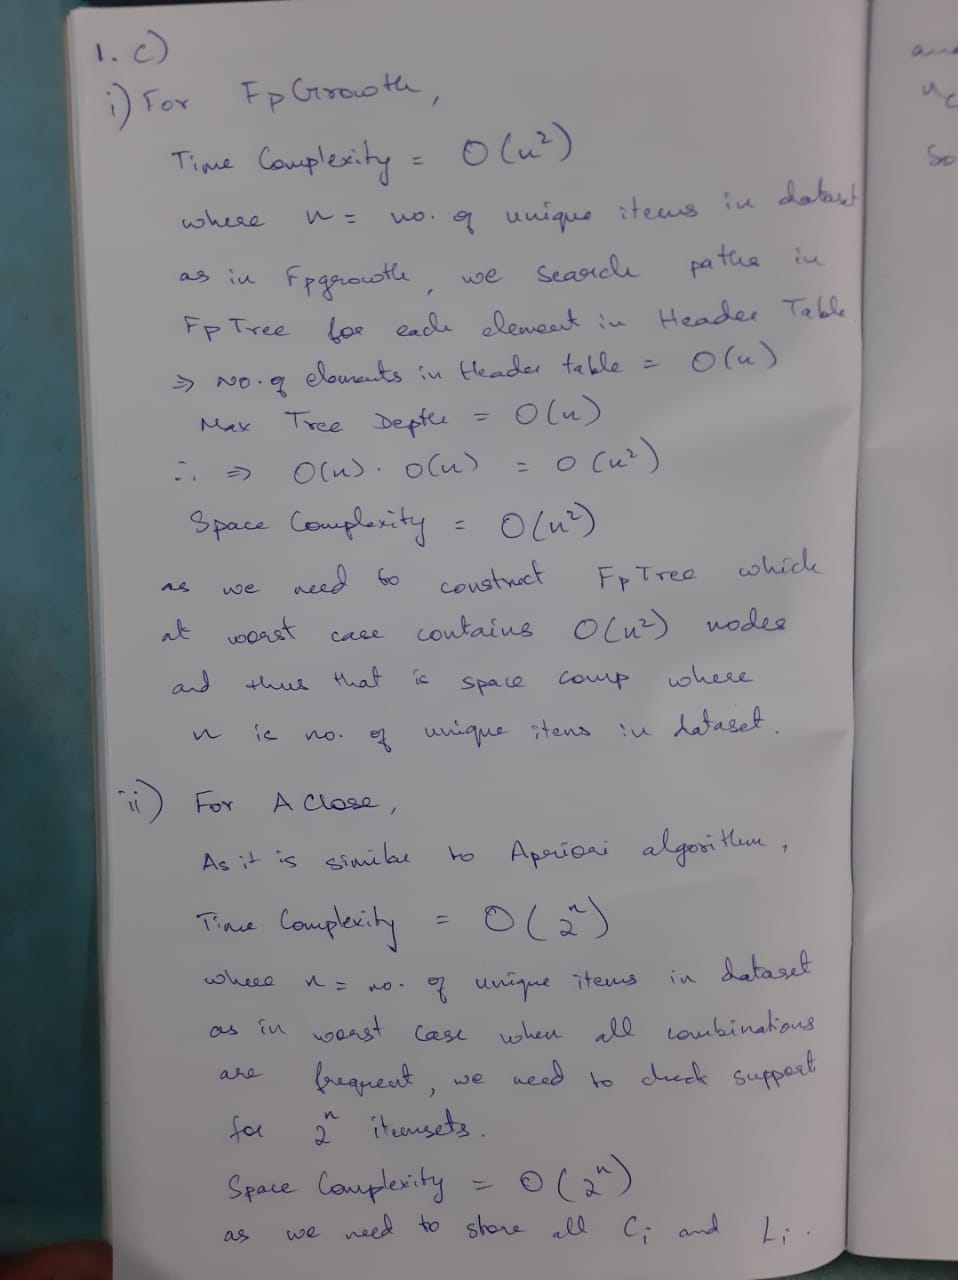 1. c)
i) For FpGrowth,
Time Complexity = O(n²)
where n = no. of unique items in dataset
as in Fpgrowth, we search paths in
FpTree for each element in Header Table
⇒ No. of elements in Header table = O(n)
Max Tree Depth = O(n)
∴ ⇒ O(n). O(n) = O(n²)
Space Complexity = O(n²)
as we need to construct FpTree which
at worst case contains O(n²) nodes
and thus that is space comp where
n is no. of unique items in dataset.
ii) For A Close,
As it is similar to Apriori algorithm,
Time Complexity = O(2ⁿ)
where n = no. of unique items in dataset
as in worst case when all combinations
are frequent, we need to check support
for 2ⁿ itemsets.
Space Complexity = O(2ⁿ)
as we need to store all Ci and Li.
So